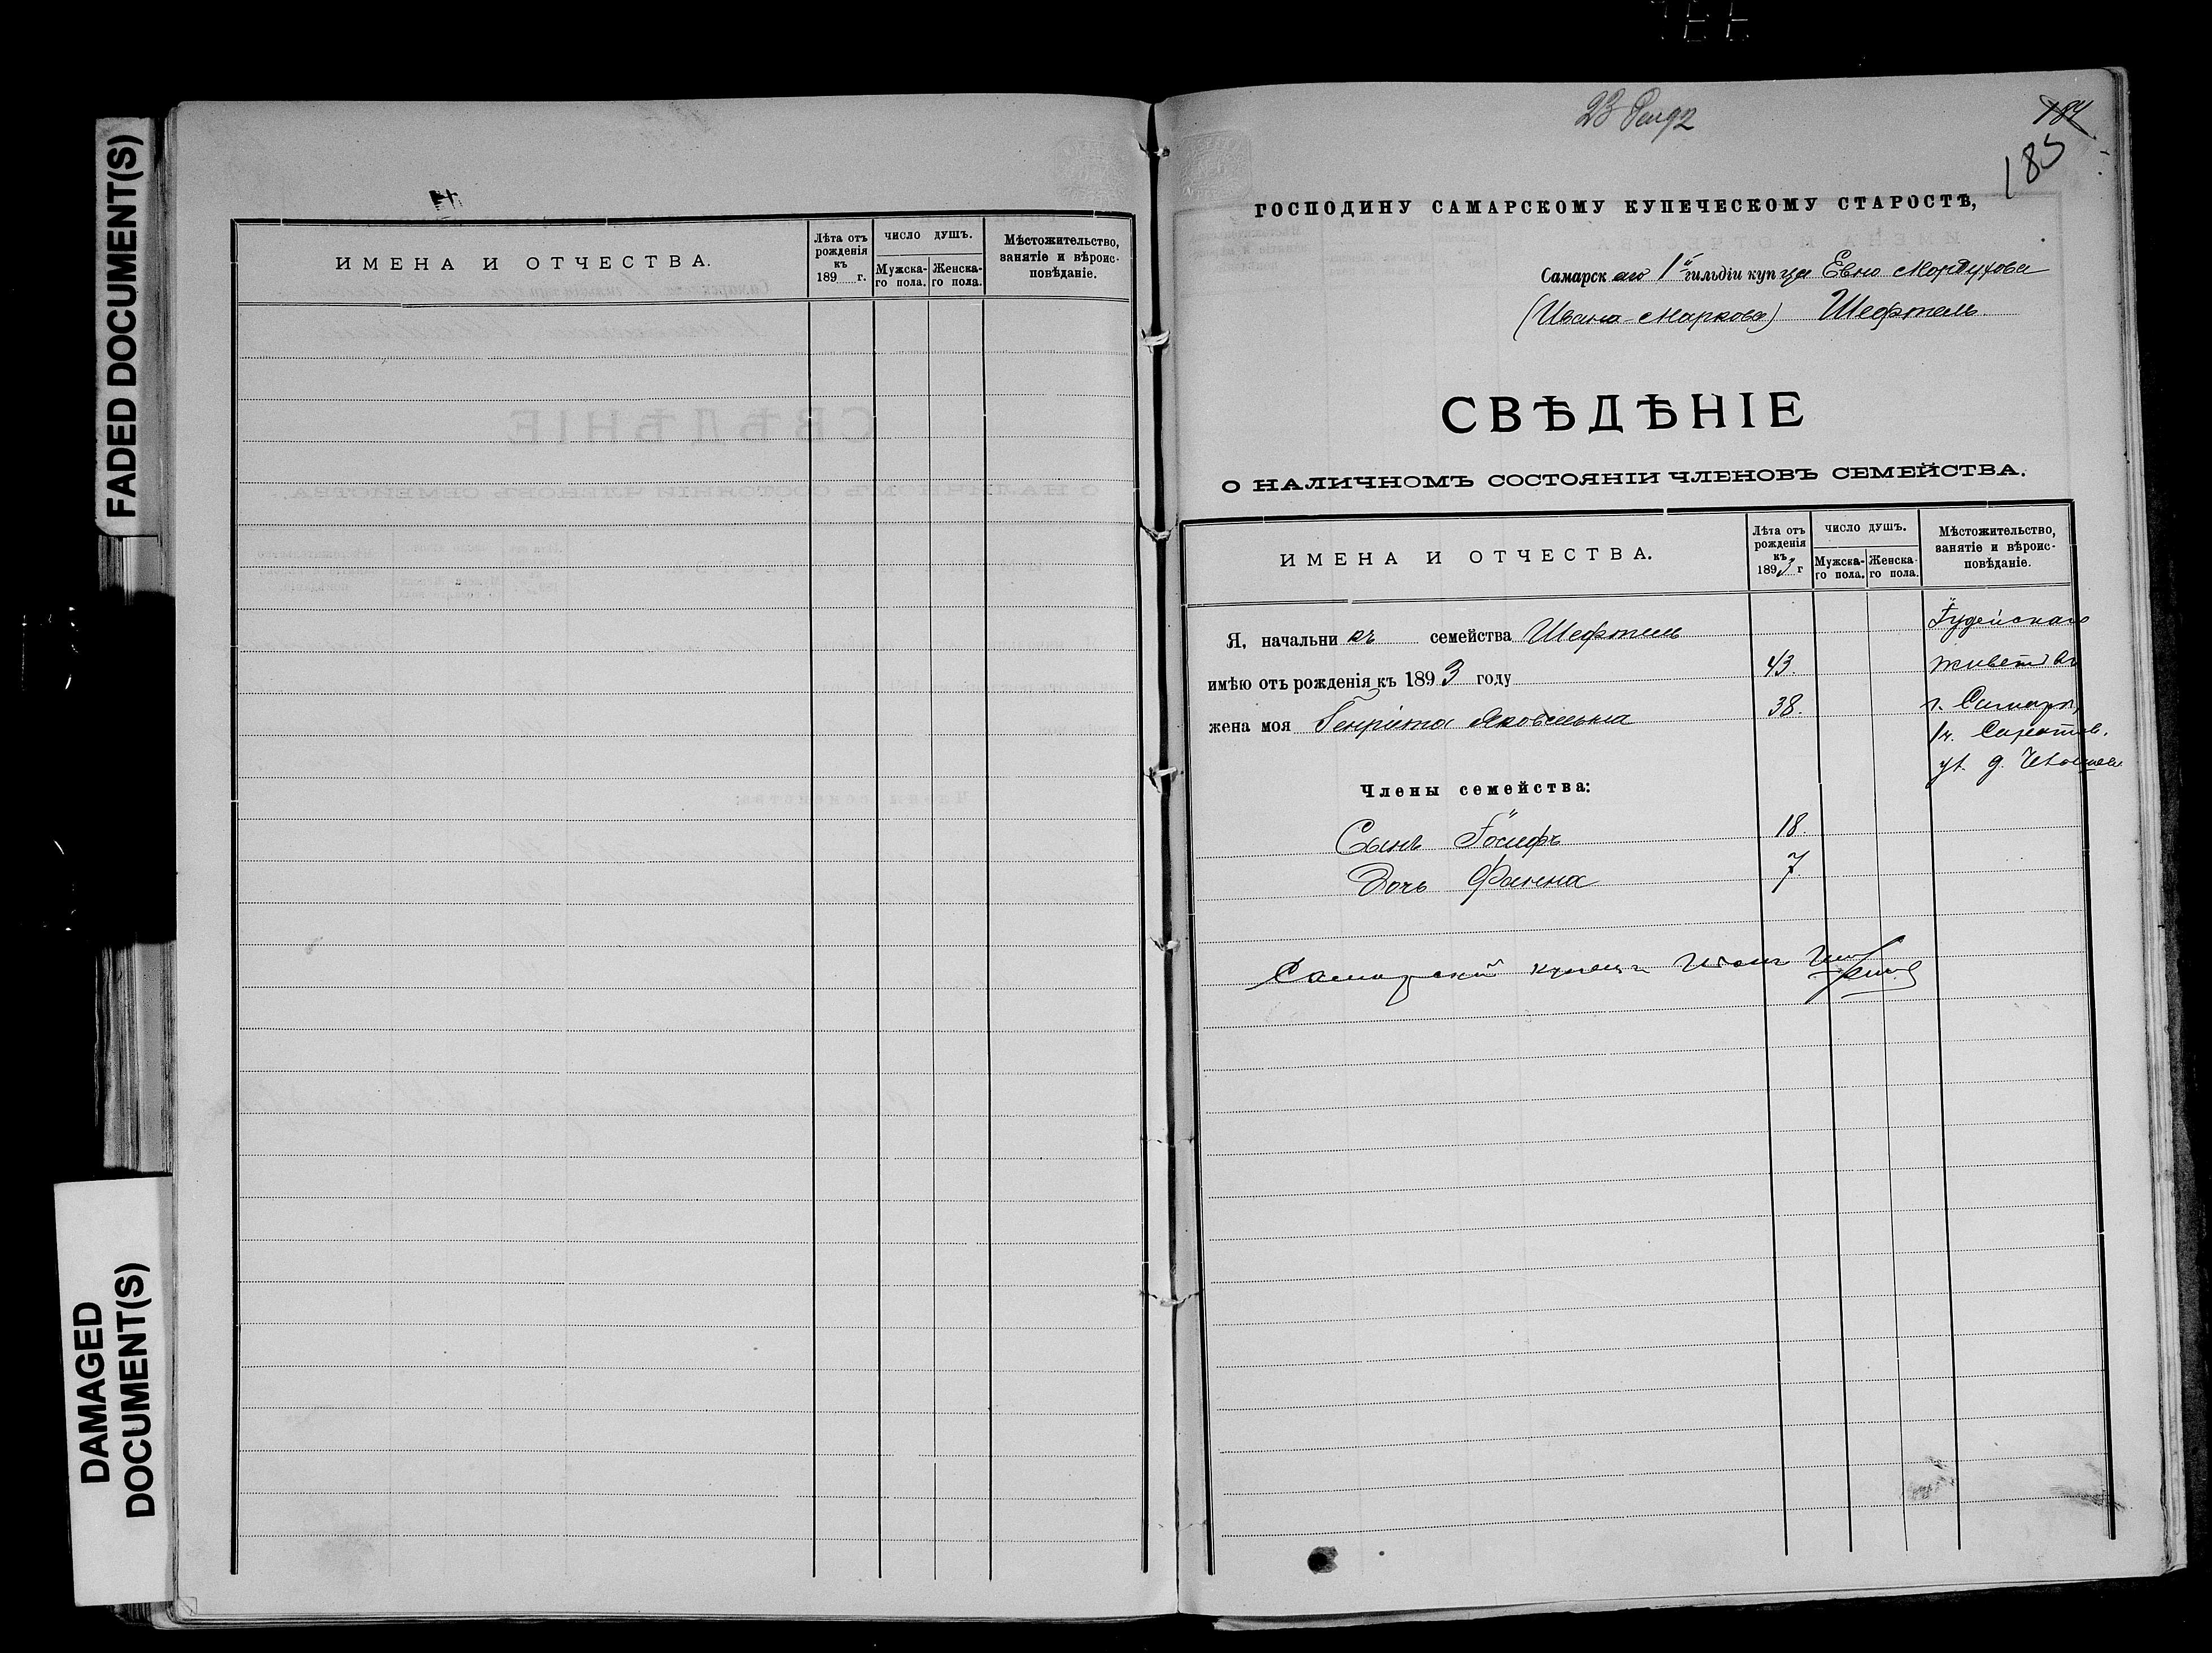 FADED DOCUMENT(S)
DAMAGED
DOCUMENT(S)
ИМЕНА И ОТЧЕСТВА.
Лѣта отъ
рожденія
къ
189 г.
ЧИСЛО ДУШЪ.
Мужска-
го пола.
Женска-
го пола.
Мѣстожительство,
занятіе и вѣроис-
повѣданіе.
184
185
ГОСПОДИНУ САМАРСКОМУ КУПЕЧЕСКОМУ СТАРОСТѢ,
Самарскаго 1й гильдіи купца Евно Мордухова
(Ивана Маркова) Шефтель
СВѢДѢНІЕ
О НАЛИЧНОМЪ СОСТОЯНІИ ЧЛЕНОВЪ СЕМЕЙСТВА.
ИМЕНА И ОТЧЕСТВА.
Лѣта отъ
рожденія
къ
1893 г
ЧИСЛО ДУШЪ.
Мужска-
го пола.
Женска-
го пола.
Мѣстожительство,
занятіе и вѣроис-
повѣданіе.
Я, начальникъ семейства Шефтель Іудейскаго
имѣю отъ рожденія къ 1893 году 43. живетъ въ
жена моя Генріета Яковлевна 38. г. Самарѣ
1ч. Саратов.
ул. д.
Члены семейства:
Сынъ Іосифъ 18.
Дочь Фанна 7
Самарскій купецъ